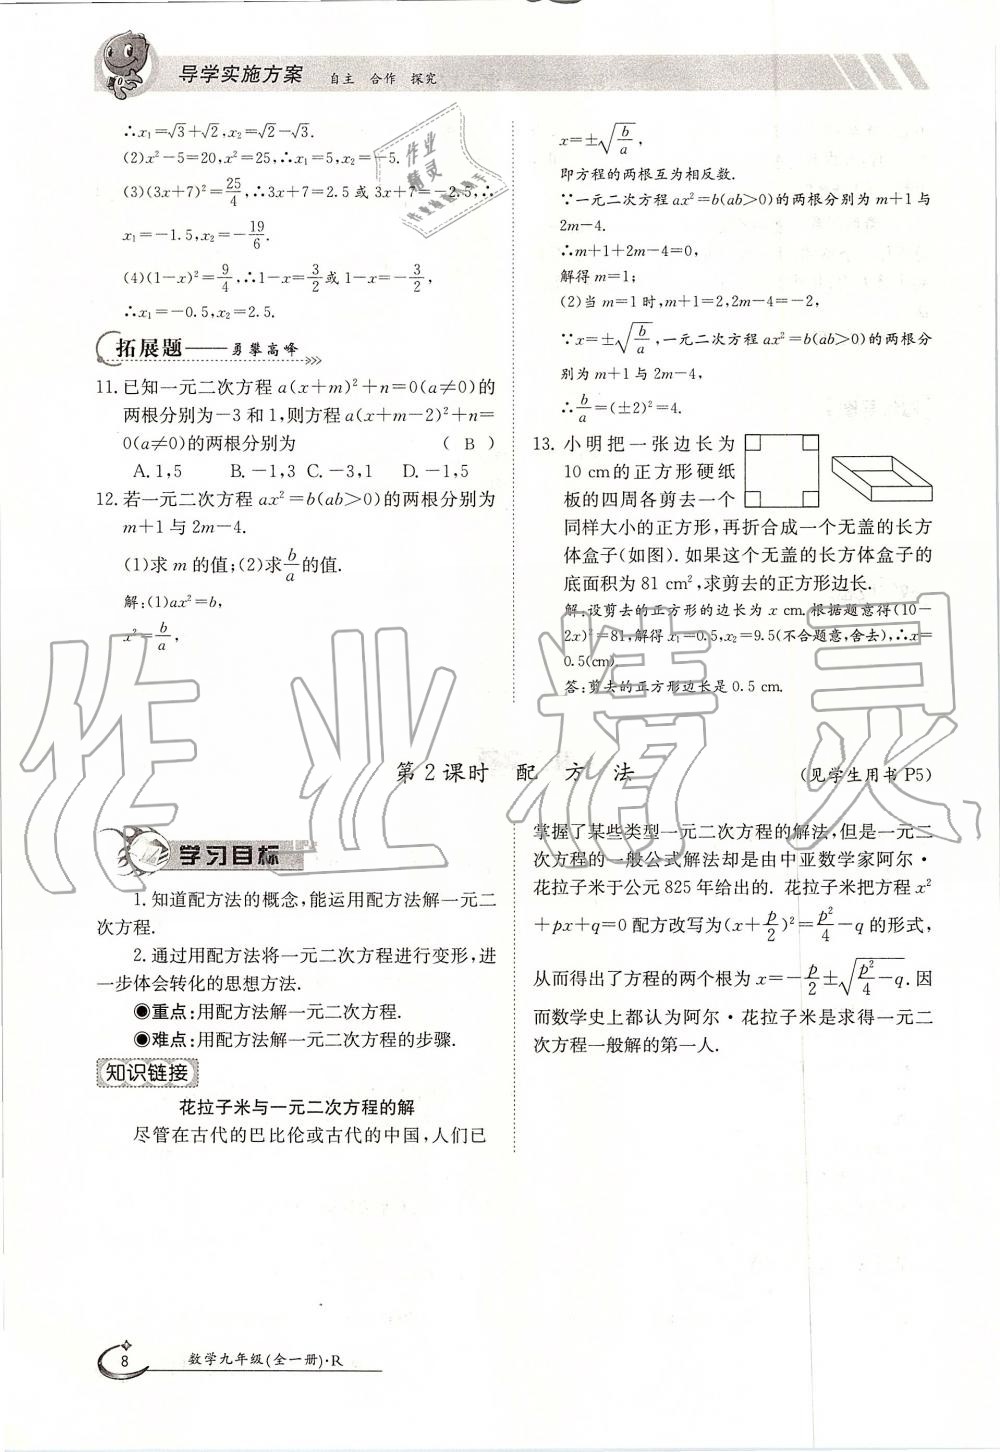 导学实施方案 自主 合作 探究
∴x₁=√3+√2,x₂=√2-√3.
(2)x²-5=20,x²=25,∴x₁=5,x₂=-5.
(3)(3x+7)²=25/4,∴3x+7=2.5 或 3x+7=-2.5,∴
x₁=-1.5,x₂=-19/6.
(4)(1-x)²=9/4,∴1-x=3/2或 1-x=-3/2,
∴x₁=-0.5,x₂=2.5.
拓展题——勇攀高峰
11. 已知一元二次方程 a(x+m)²+n=0(a≠0)的
两根分别为-3 和 1,则方程 a(x+m-2)²+n=
0(a≠0)的两根分别为 ( B )
A. 1,5 B. -1,3 C. -3,1 D. -1,5
12. 若一元二次方程 ax²=b(ab>0)的两根分别为
m+1 与 2m-4.
(1)求 m 的值;(2)求b/a的值.
解:(1)ax²=b,
x²=b/a,
x=±√(b/a),
即方程的两根互为相反数.
∵一元二次方程 ax²=b(ab>0)的两根分别为 m+1 与
2m-4.
∴m+1+2m-4=0,
解得 m=1;
(2)当 m=1 时,m+1=2,2m-4=-2,
∵x=±√(b/a),一元二次方程 ax²=b(ab>0)的两根分
别为 m+1 与 2m-4,
∴b/a=(±2)²=4.
13. 小明把一张边长为
10 cm的正方形硬纸
板的四周各剪去一个
同样大小的正方形,再折合成一个无盖的长方
体盒子(如图). 如果这个无盖的长方体盒子的
底面积为 81 cm²,求剪去的正方形边长.
解:设剪去的正方形的边长为 x cm. 根据题意得(10-
2x)²=81,解得 x₁=0.5,x₂=9.5(不合题意,舍去),∴x=
0.5(cm)
答:剪去的正方形边长是 0.5 cm.
第 2 课时 配 方 法 (见学生用书 P5)
学习目标
1. 知道配方法的概念,能运用配方法解一元二
次方程.
2. 通过用配方法将一元二次方程进行变形,进
一步体会转化的思想方法.
◉重点:用配方法解一元二次方程.
◉难点:用配方法解一元二次方程的步骤.
知识链接
花拉子米与一元二次方程的解
尽管在古代的巴比伦或古代的中国,人们已
掌握了某些类型一元二次方程的解法,但是一元二
次方程的一般公式解法却是由中亚数学家阿尔·
花拉子米于公元 825 年给出的. 花拉子米把方程 x²
+px+q=0 配方改写为(x+p/2)²=p²/4-q 的形式,
从而得出了方程的两个根为 x=-p/2±√(p²/4-q). 因
而数学史上都认为阿尔·花拉子米是求得一元二
次方程一般解的第一人.
8 数学九年级(全一册)·R
作业精灵
作业精灵